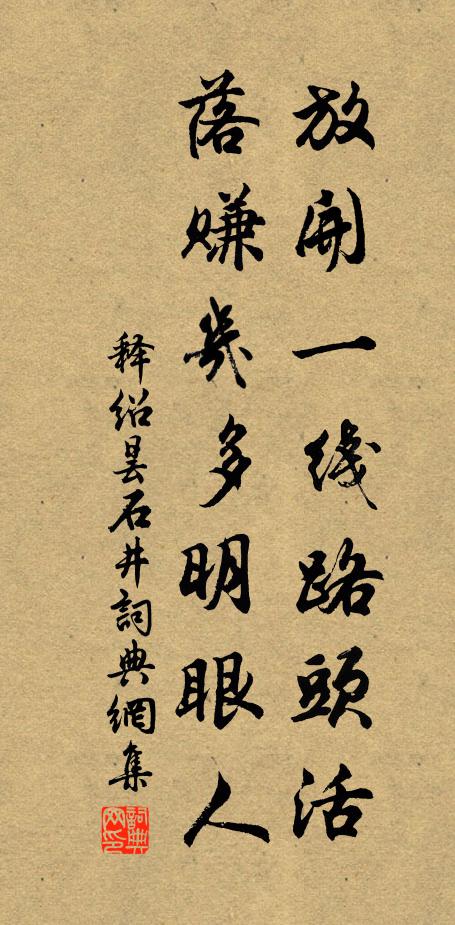 放開一线路頭活
落賺幾多明眼人
释绍昙石井詞典網集
詞典网印